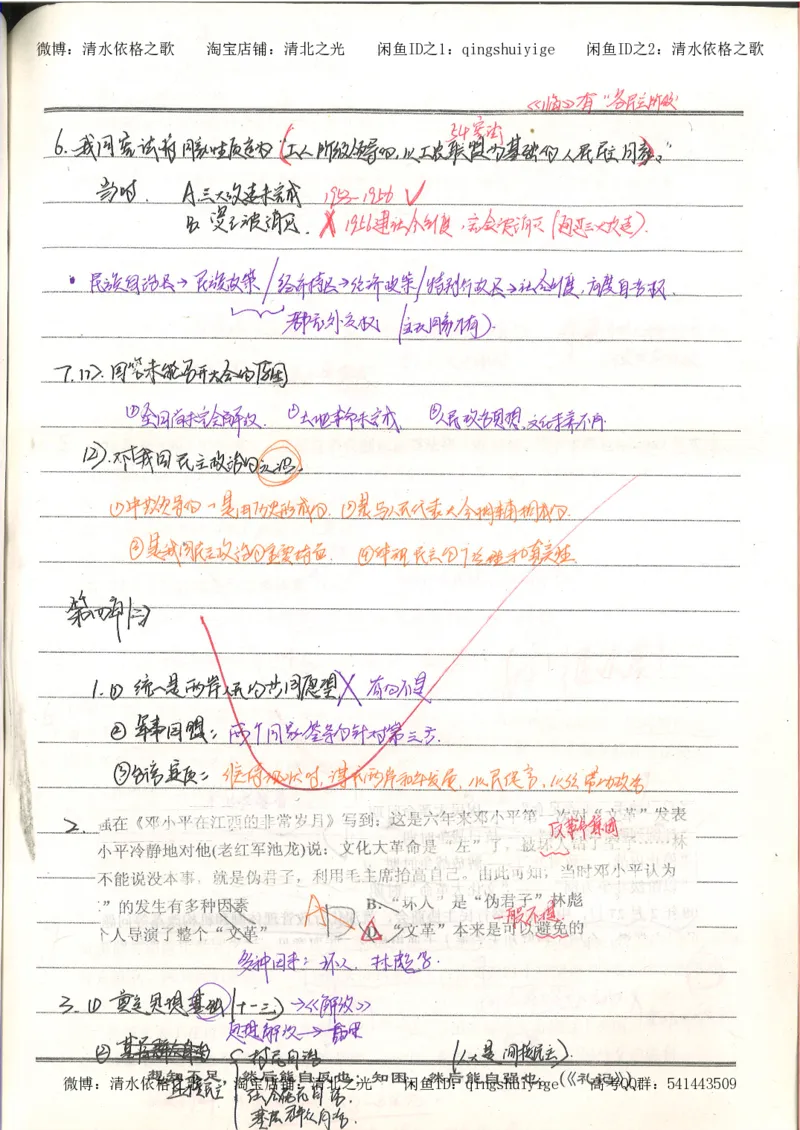 微博：清水依格之歌 淘宝店铺：清北之光 闲鱼ID之1：qingshuiyige 闲鱼ID之2：清水依格之歌
《临》有“各民主阶级”
54宪法
6. 我国宪法将国家性质定为“工人阶级领导的，以工农联盟为基础的人民民主国家。”
当时. A.三大改造未完成 1953-1956 ✓
B. 被消灭. ✗ 1956建社会制度, (通过三大改造).
• 民族自治区→民族政策/经济特区→经济政策/特别行政区→社会制度,高度自治权.
都无外交权 (主权国家才有).
7.(1). 未能召开大会的原因
①全国尚未完全解放. ②土地革命未完成 ③人民政治思想,文化素养不高
(2).对我国民主政治的认识.
①中共领导的, 是历史形成的. ②是与人民代表大会相辅相成的.
③是我国民主政治的重要特征. ④体现民主的广泛性和真实性.
第四单(二)
1.① 统一是两岸人民的共同愿望 ✗ 有的不是
② 军事同盟: 两个国家签条约针对第三方.
③ 维持现状时,谋求两岸和平发展,以民促官,以经带动政治
2. 在《邓小平在江西的非常岁月》写到：这是六年来邓小平第一次对“文革”发表
反革命集团
小平冷静地对他(老红军池龙)说：文化大革命是“左”了，被坏人钻了空子……林
不能说没本事，就是伪君子，利用毛主席抬高自己。由此可知，当时邓小平认为
”的发生有多种因素 B、“坏人”是“伪君子”林彪
一般不选
个人导演了整个“文革” D、“文革”本来是可以避免的
多种因素：坏人、林彪等.
3.① 奠定思想基础 (十一三)→《解放》
思想解放→
② 基层群众自治 { 村民自治 (人大是间接民主).
直接民主
想知不足，然后能自反也；知困，然后能自强也。(《礼记》)
微博：清水依格之歌 淘宝店铺：清北之光 闲鱼ID之1：qingshuiyige 高考QQ群：541443509
基层群众自治.